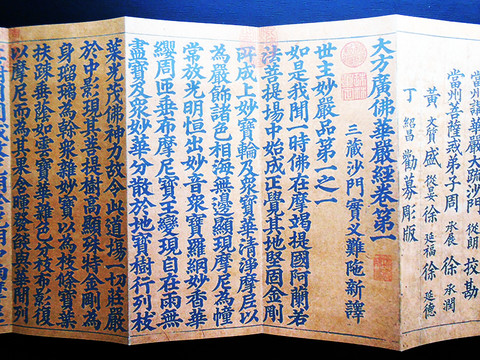 當州講華嚴大疏沙門 從朗 挍勘
當州菩薩戒弟子周 承展 徐 承潤
黃 文質 盛 從晏 徐 延福 徐 延德
丁 紹昌 勸募彫版
大方廣佛華嚴經卷第一
三藏沙門實叉難陁新譯
世主妙嚴品第一之一
如是我聞一時佛在摩竭提國阿蘭若
法菩提場中始成正覺其地堅固金剛
所成上妙寶輪及衆寶華清淨摩尼以
為嚴飾諸色相海無邊顯現摩尼為幢
常放光明恒出妙音衆寶羅網妙香華
纓周迊垂布摩尼寶王變現自在雨無
盡寶及衆妙華分散於地寶樹行列枝
葉光茂佛神力故令此道場一切莊嚴
於中影現其菩提樹高顯殊特金剛為
身瑠璃為榦衆雜妙寶以為枝條寶葉
扶踈垂蔭如雲寶華雜色分枝布影復
以摩尼而為其果含暉發焰與華間列